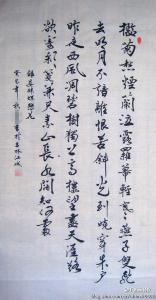 檻菊愁煙蘭泣露羅幕輕寒燕子雙飛
去明月不諳離恨苦斜光到曉穿朱户
昨夜西風凋碧樹獨上高樓望盡天涯路
欲寄彩箋兼尺素山長水闊知何處
錄晏殊蝶戀花
癸巳年秋書於吉林江城